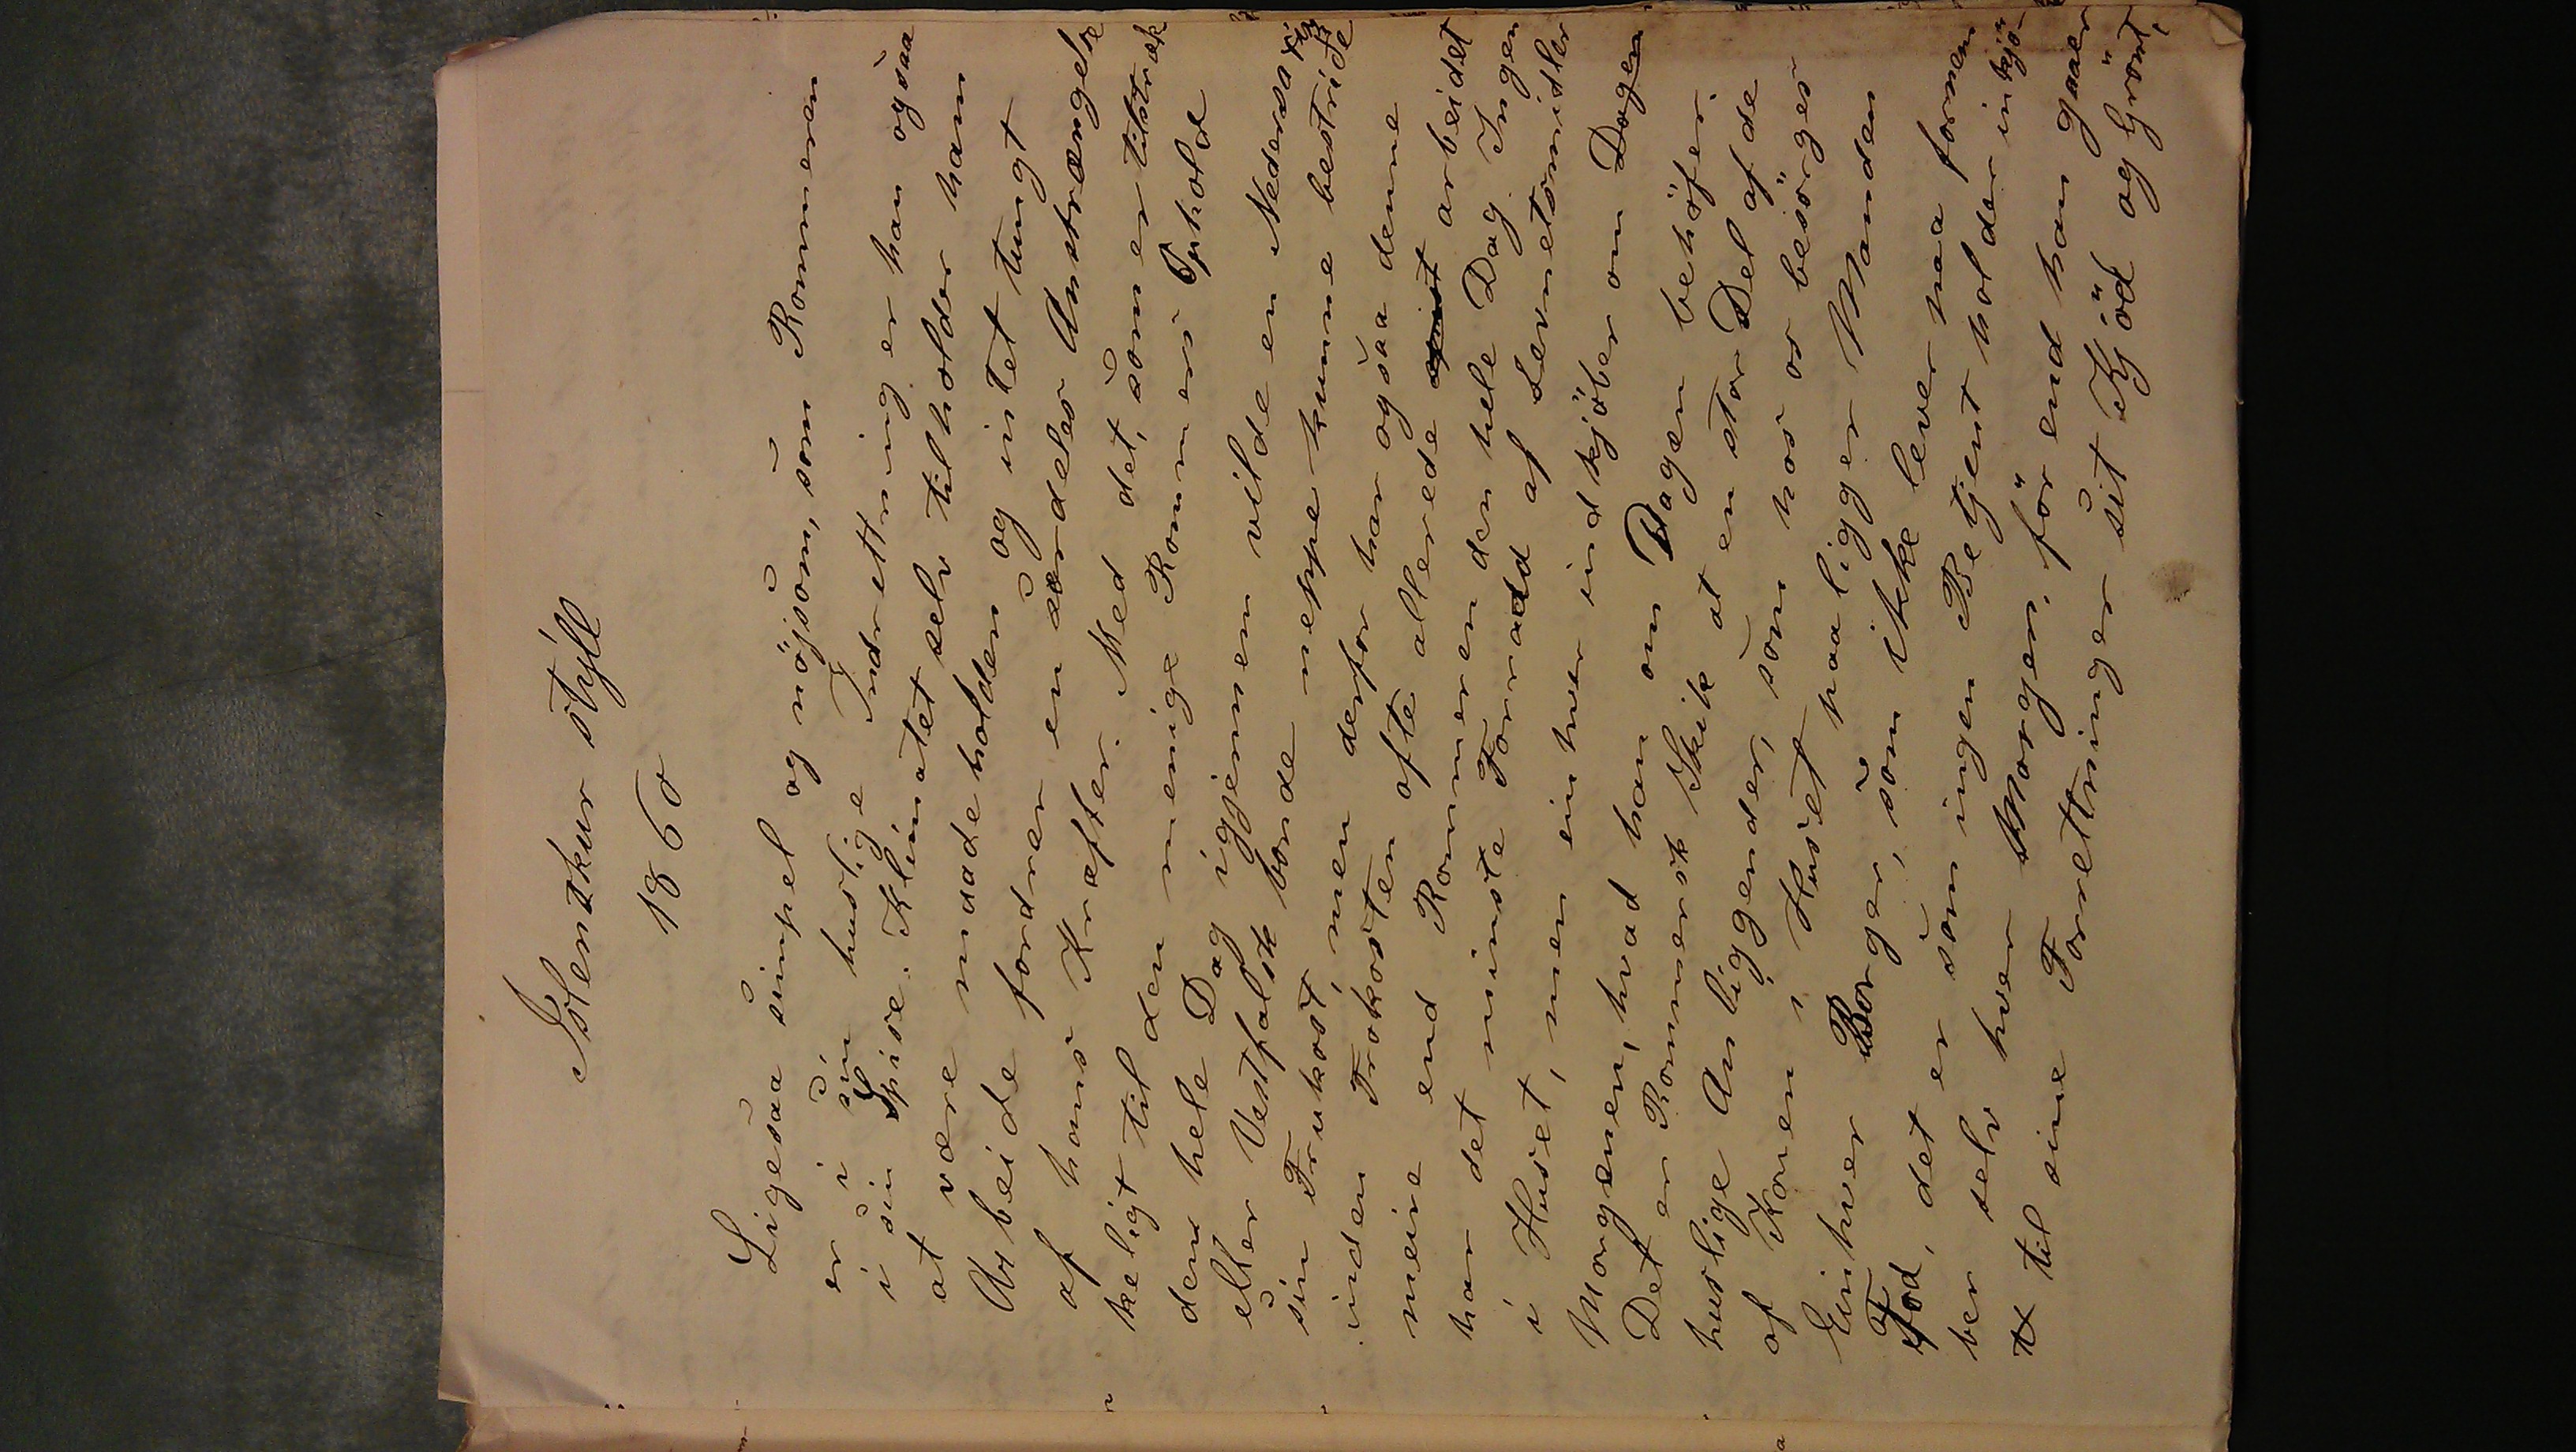 Íslenzkur stýll
1860
Ligesaa simpel og nöjsom, som Rommeren
er i sin huslige Indretning er han ogsaa
i sin Spise. Klimatet selv tilholder ham
at være maadeholden og intet tungt
Arbeide fordrer en særdeles Anstrængelse
af hans Kræfter. Med det, som er tilstræk
keligt til den menige Rommers Ophold
den hele Dag igjennem vilde en Nedersaxer
eller Vestfalsk bonde neppe kunne bestride
sin Frukost, men derfor har ogsaa denne
inden Frokosten ofte allerede arbeidet
meire end Rommeren den hele Dag. Ingen
har det minste Forraad af Levnetsmidler
i Huset, men einhver indkjöber om Dagen
Morgenen, hvad han om Dagen behöfer.
Det er Rommersk Skik at en stor Del af de
huslige Anliggender, som hos os besörges
af Konen i Huset paaligger Manden
Einhver Borger, som ikke lever paa fornem
Fod, det er som ingen Betjent holder indkjö-
ber selv hver Morgen, för end han gaaer
til sine Forretninger sit Kjöd og Grönt,